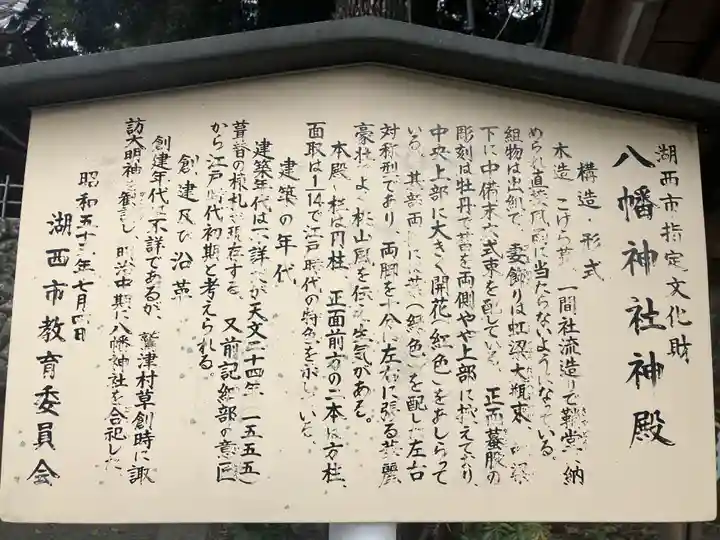 湖西市指定文化財
八幡神社神殿
構造形式
木造 こけら葺 一間社流造りで鞘堂に納
められ直接風雨に当たらないようになっている。
組物は出組で、妻飾りは虹梁大瓶束、
下に中備末 式束を配している。正面蟇股の
彫刻は牡丹で蕾を両側やや上部に控えており、
中央上部に大きく開花(紅色)をあしらって
いる。其許両 には葉(緑色)を配した左右
対称型であり、両脚を十分に左右に張る華麗
豪壮 よく桃山風を伝え生気がある。
本殿の柱は円柱、正面前方の二本は方柱、
面取は1/14で江戸時代の特色を示している。
建築の年代
建築年代は不詳 が天文二十四年(一五五五)
葺替の棟札が現存する。又前記細部の意匠
から江戸時代初期と考えられる。
創建及び沿革
創建年代は不詳であるが、鷲津村草創時に諏
訪大明神を勧請し、明治中期に八幡神社を合祀した。
昭和五十 年七月四日
湖西市教育委員会